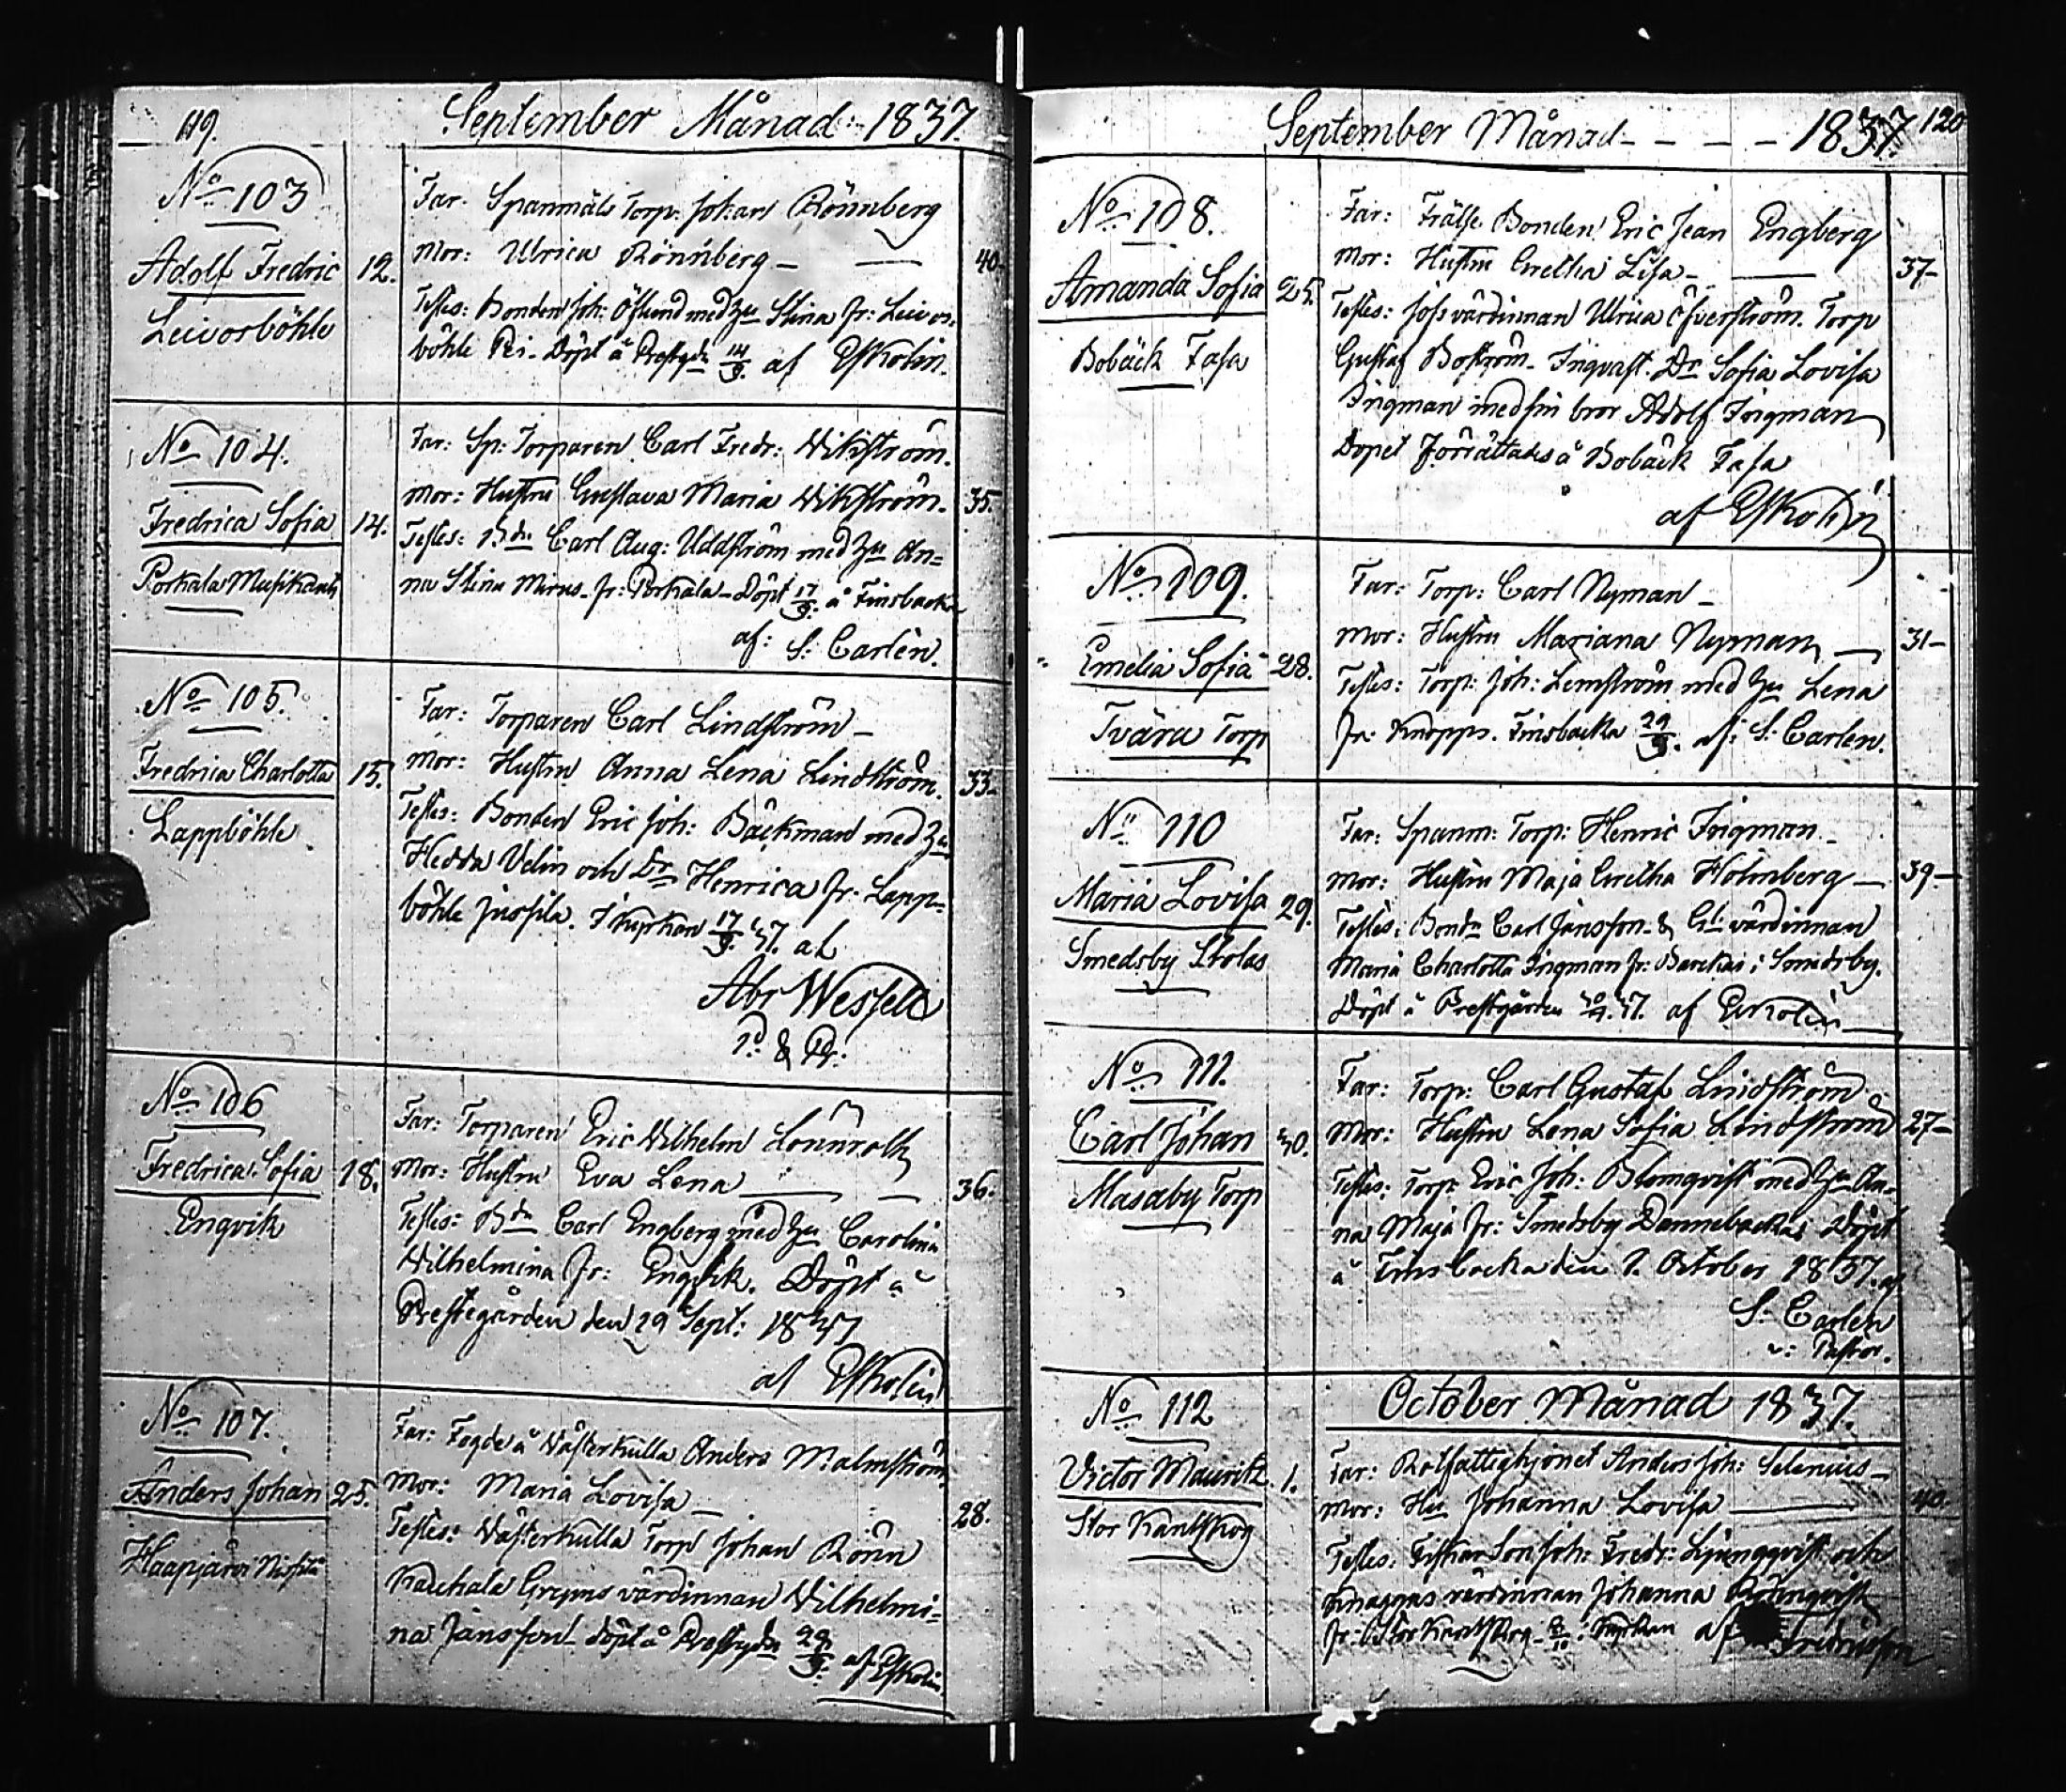 119.
September Månad 1837.
No 103
Adolf Fredric
Leivosböhle
12.
Far: Spanmåls Torp: Johan Rönnberg
Mor: Ulrica Rönnberg —
40.
Testes: Bonden Joh: Öflund med Hu Stina fr: Leivos
böhle Döpt å Prestgdn 14/9. af Eskolin.
No 104.
Fredrica Sofia
Porkala
14.
Far: Sp: Torparen Carl Fredr: Wikström.
Mor: Hustru Gustava Maria Wikström.
35.
Testes: Bdn Carl Aug: Uddström med Hu An=
na Stina fr: Porkala – Döpt 17/9. å Finsbacka
af: S. Carlén.
No 105.
Fredrica Charlotta
Lappböhle
15.
Far: Torparen Carl Lindström —
Mor: Hustru Anna Lena Lindström.
33.
Testes: Bonden Eric Joh: Bäckman med Hu
Hedda och Dr Henrica fr. Lapp=
böhle Jussila. I kyrkan 17/9. 37. af
Abr Wesfelt
P. &
No 106
Fredrica Sofia
Engvik
18.
Far: Torparen Eric Wilhelm Lönnroth
Mor: Hustru Eva Lena —
36.
Testes: Bdn Carl Engberg med Hu Carolina
Wilhelmina fr: Engvik. Döpt å
Prestegården den 29 Sept: 1837
af Eskolin
No 107.
Anders Johan
Haapjärvi
25.
Far: Fogde å Västerkulla Anders Malmström
Mor: Maria Lovisa —
28.
Testes: Västerkulla Torp Johan Rönn
Kauhala värdinnan Wilhelmi=
na Jansson döpt å Prestgdn 29/9. af Eskolin
September Månad – – – – 1837
120
No 108.
Amanda Sofia
Bobäck Fasa
25.
Far: Frälse Bonden Eric Jean Engberg
Mor: Hustru Gretha Lisa —
37–
Testes: Jofs värdinnan Ulrica Öfverström. Torp
Gustaf Boström. Ingvast. Dr Sofia Lovisa
Ingman med sin bror Adolf Ingman
Dopet förrättades å Bobäck Fasa
af Eskolin
No 109.
Emelia Sofia
Tvära Torp
28.
Far: Torp: Carl Nyman –
Mor: Hustru Mariana Nyman —
31–
Testes: Torp: Joh: Lemström med Hu Lena
fr: Knopps. Finsbacka 29/9. af: S. Carlén.
No 110
Maria Lovisa
Smedsby Skolas
29.
Far: Spanm: Torp: Henric Ingman
Mor: Hustru Maja Gretha Holmberg —
39–
Testes: Bondn Carl Jansson & värdinnan
Maria Charlotta Ingman fr: i Smedsby.
Döpt å Prestgården 30/9. 37. af Eskolin
No 111.
Carl Johan
Masaby Torp
30.
Far: Torp: Carl Gustaf Lindström
Mor: Hustru Lena Sofia Lindström
27–
Testes: Torp: Eric Joh: Blomqvist med Hu An=
na Maja fr: Smedsby Dannebacka; Döpt
å Finsbacka den 1. October 1837. af
S. Carlén
v: Pastor.
October Månad 1837.
No 112
Victor Mauritz
Stor Kantskog
1.
Far: Rotfattighjonet Anders Joh: Selenius —
Mor: Hu Johanna Lovisa —
40.
Testes: Joh: Fredr: Ljungqvist och
värdinnan Johanna
fr: Stor Kantskog – 8/10 i Kyrkan af